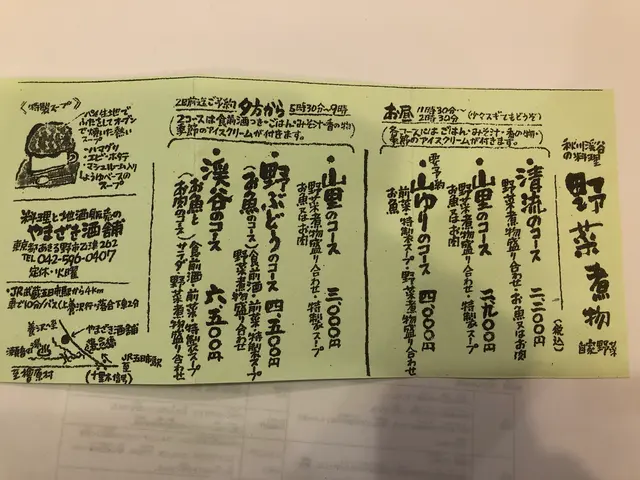 秋川渓谷
の料理
野菜煮物
自家野菜
お昼 11時30分~
2時30分
(ナマスギでもどうぞ)
(各コースにはごはん・みそ汁・香の物・
季節のアイスクリームが付きます。)
・清流のコース 二、二〇〇円
(税込)
野菜煮物盛り合わせ・お魚又はお肉
・山里のコース 二、九〇〇円
野菜煮物盛り合わせ・特製スープ
お魚又はお肉
要予約
・山ゆりのコース 四、〇〇〇円
前菜・特製スープ・野菜煮物盛り合わせ
お魚
2日前迄ご予約 夕方から 5時30分~9時
(2コースは食前酒つき・ごはん・みそ汁・香の物
季節のアイスクリームが付きます。)
・山里のコース 三、〇〇〇円
野菜煮物盛り合わせ・特製スープ
お魚又はお肉
・野ぶどうのコース 四、五〇〇円
(お魚のコース) (食前酒・前菜・特製スープ
野菜煮物盛り合わせ
・渓谷のコース 六、五〇〇円
(お魚と
お肉のコース) (食前酒・前菜・特製スープ
サラダ 野菜煮物盛り合わせ
《特製スープ》
パイ生地で
ふたをしてオーブン
で焼いた熱い
・ハマグリ
・エビ・ホタテ
・マッシュルーム入り
しょうゆベースの
スープ
料理と地酒販売の
やまざき酒舗
東京都あきる野市乙津262
TEL 042-596-0407
定休・火曜
・JR武蔵五日市駅から4km
車で10分/バス(上養沢行・落合下車2分
養沢
やまざき酒舗
落合橋
瀬音の湯
JR五日市駅
至檜原村
(十里木信号)